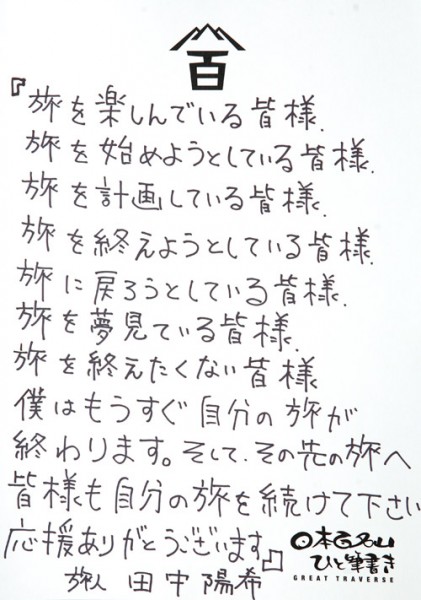 百
『旅を楽しんでいる皆様.
旅を始めようとしている皆様.
旅を計画している皆様.
旅を終えようとしている皆様.
旅に戻ろうとしている皆様.
旅を夢見ている皆様.
旅を終えたくない皆様
僕はもうすぐ自分の旅が
終わります。そして、その先の旅へ
皆様も自分の旅を続けて下さい
応援ありがとうございます。』
旅人 田中陽希
日本百名山
ひと筆書き
GREAT TRAVERSE